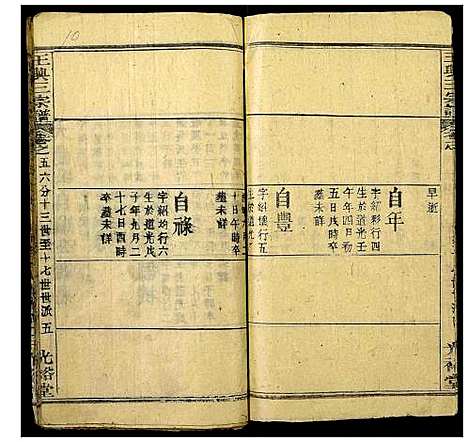 早逝
自年
字紹彩行四
生於道光壬
午年四日夘時
五日戌時卒
塟未詳
自豊
字紹儀行五
生於道光
十日午時卒
塟未詳
自祿
字紹均行六
生於道光戊
子年九月二
十七日酉時
卒塟未詳
王與三宗譜
卷之
五六分十三世至十七世世派
五
光裕堂
10